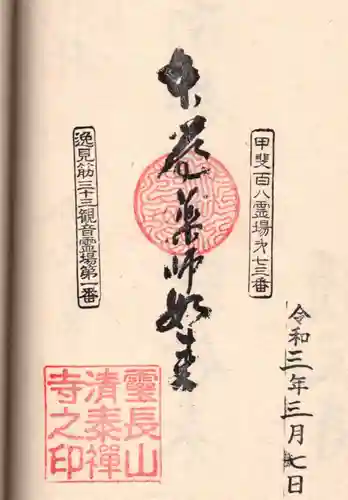 甲斐百八霊場第七三番
令和三年三月七日
本尊薬師如来
逸見筋三十三観音霊場第一番
靈長山
清泰禪
寺之印